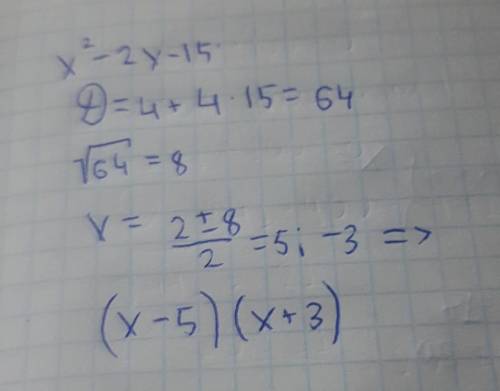 x² - 2x - 15
D = 4 + 4 · 15 = 64
√64 = 8
x = (2 ± 8)/2 = 5; -3 =>
(x - 5) (x + 3)